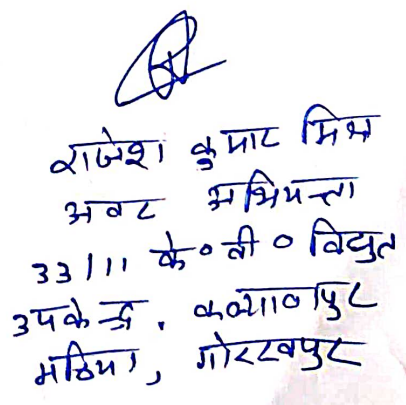 राजेश कुमार मिश्र
अवर अभियन्ता
33/11 के०वी० विद्युत
उपकेन्द्र,
मठिया, गोरखपुर